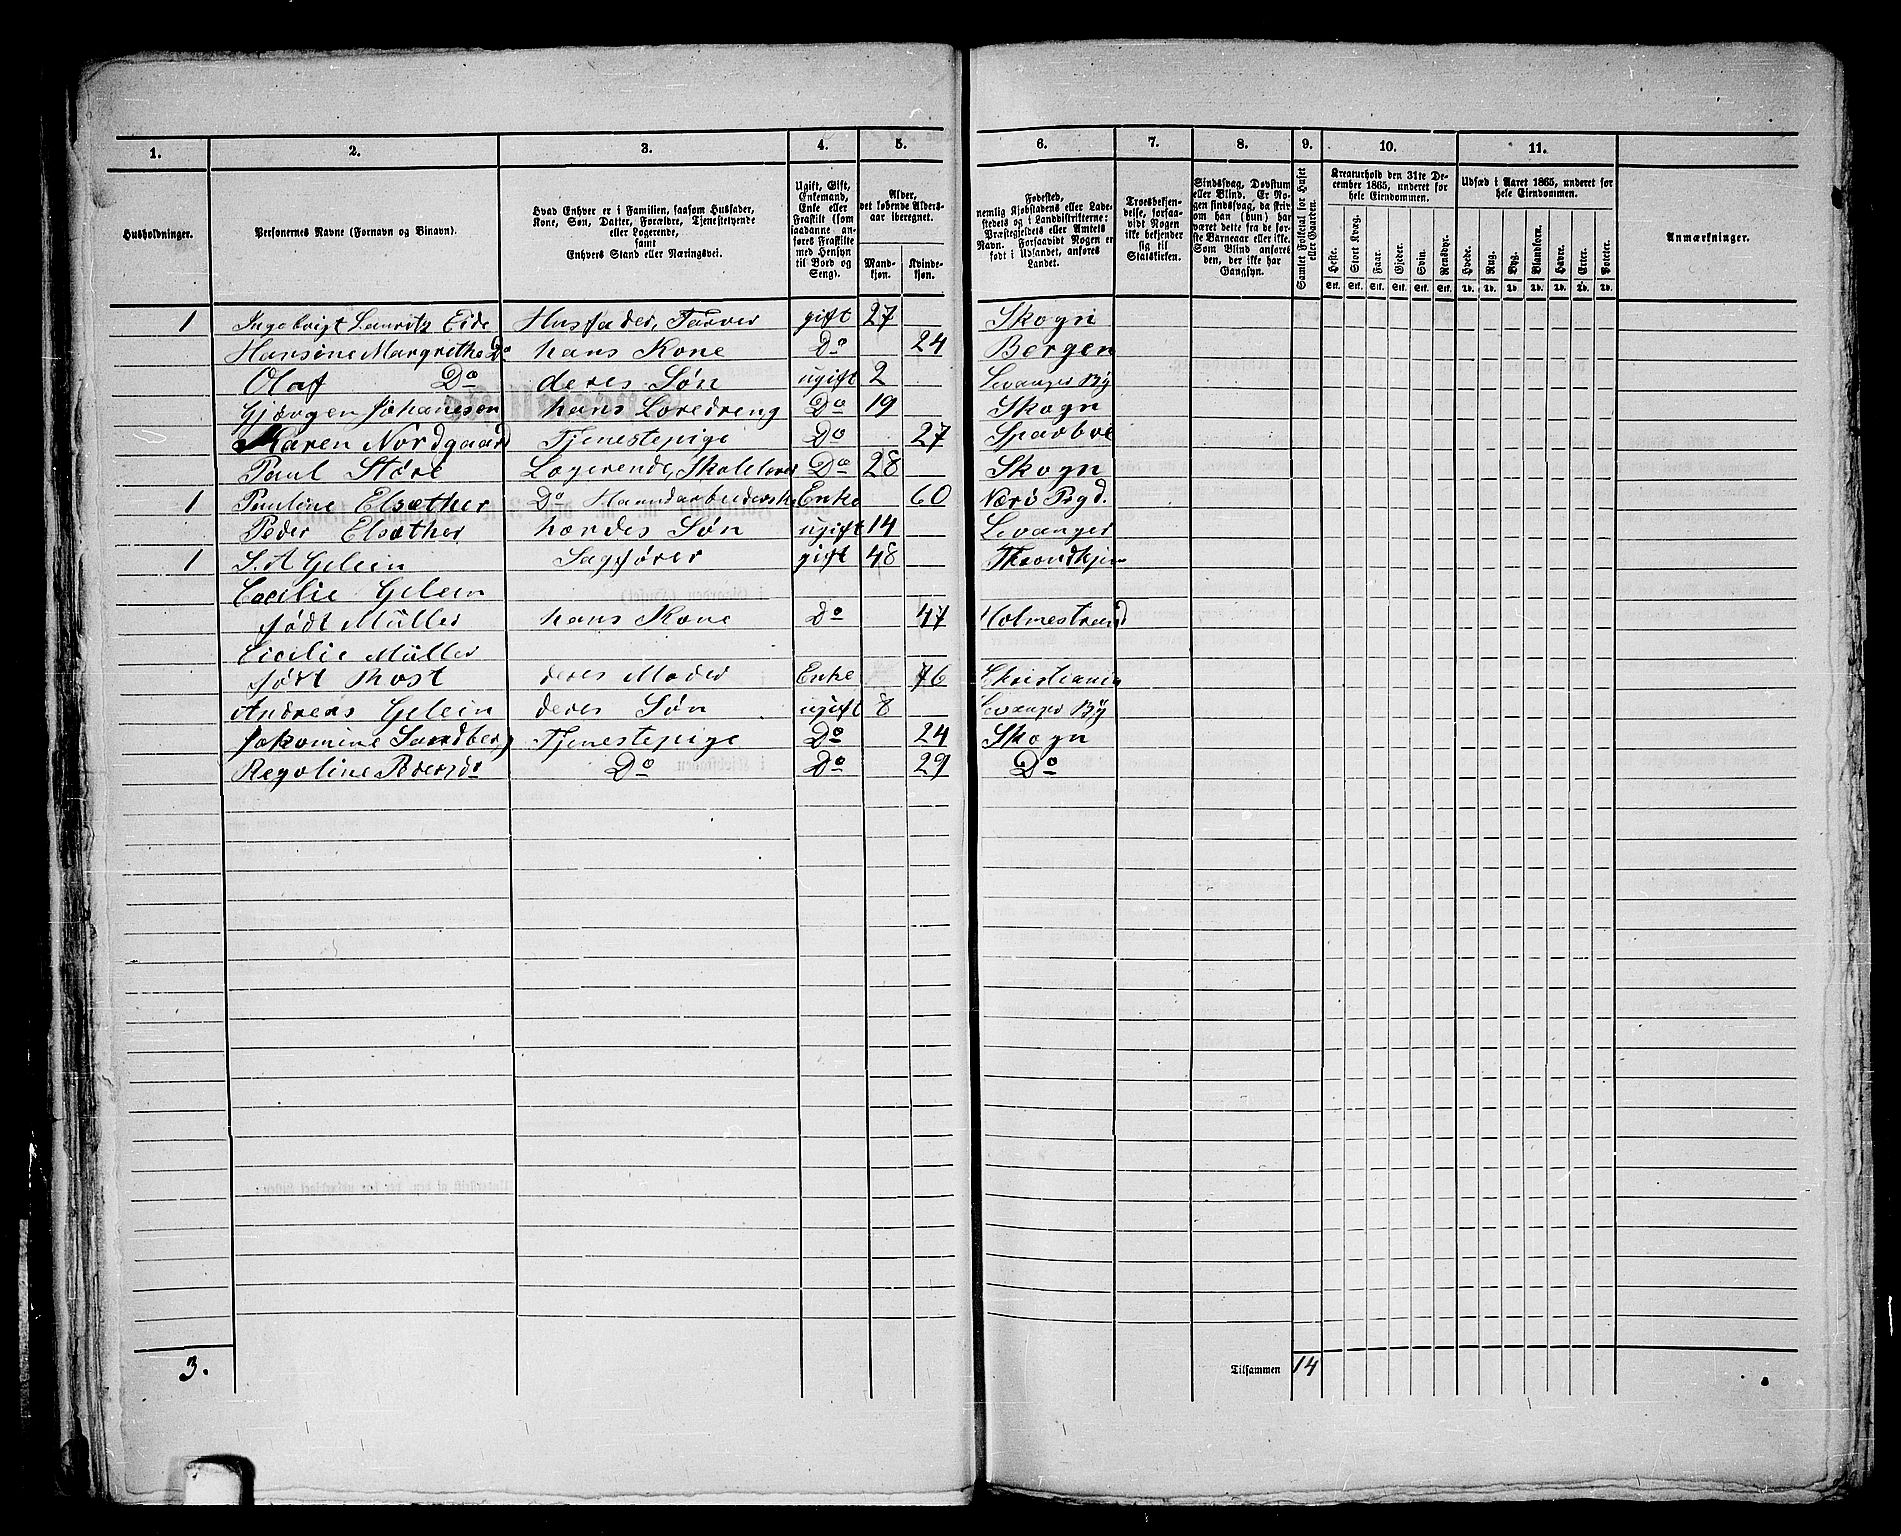 1. 2. 3. 4. 5. 6. 7. 8. 9. 10. 11.
Husholdninger.
Personernes Navne (Fornavn og Binavn).
Hvad Enhver er i Familien, saasom Husfader,
Kone, Søn, Datter, Forældre, Tjenestetyende
eller Logerende,
samt
Enhvers Stand eller Næringsvei.
Ugift, Gift,
Enkemand,
Enke eller
Fraskilt (som
saadanne an-
føres Fraskilte
med Hensyn
til Bord og
Seng).
Alder,
det løbende Alders-
aar iberegnet.
Mand-
kjøn.
Kvinde-
kjøn.
Fødested,
nemlig Kjøbstadens eller Lade-
stedets og i Landdistrikterne:
Præstegjeldets eller Amtets
Navn. Forsaavidt Nogen er
født i Udlandet, anføres
Landet.
Troesbekjen-
delse, forsaa-
vidt Nogen
ikke bekjender
sig til
Statskirken.
Sindssvag, Døvstum
eller Blind. Er No-
gen sindssvag, da skriv
om han (hun) har
været dette fra de før-
ste Barneaar eller ikke.
Som Blind anføres
den, der ikke har
Gangsyn.
Samlet Folketal for Huset
eller Gaarden.
Kreaturhold den 31te De-
cember 1865, underet for
hele Eiendommen.
Heste. Stort Kvæg. Faar. Gjeder. Svin. Rensdyr.
Stk. Stk. Stk. Stk. Stk. Stk.
Udsæd i Aaret 1865, underet for
hele Eiendommen.
Hvede. Rug. Byg. Blandkorn. Havre. Erter. Poteter.
Td. Td. Td. Td. Td. Td. Td.
Anmærkninger.
1 Ingebrigt Lauritz Eide Husfader, Farver gift 27 Skogn
Hansine Margrethe Do hans Kone Do 24 Bergen
Olaf Do deres Søn ugift 2 Levanger By
Gjørgen Johanesen hans Læredreng Do 19 Skogn
Karen Nordgaard Tjenestepige Do 27 Sparbue
Paul Støre Logerende, Skolelærer Do 28 Skogn
1 Pauline Elsæther Do Haandarbeiderske Enke 60 Nærø Prgd.
Peder Elsæther hendes Søn ugift 14 Levanger
1 S. A Gelein Sagfører gift 48 Throndhjem
Cecilie Gelein
født Müller hans Kone Do 47 Holmestrand
Cicilie Müller
født Rost deres Moder Enke 76 Christiania
Andreas Gelein deres Søn ugift 8 Levanger By
Jakomine Sandberg Tjenestepige Do 24 Skogn
Regoline Pedersdo Do Do 29 Do
3. Tilsammen 14